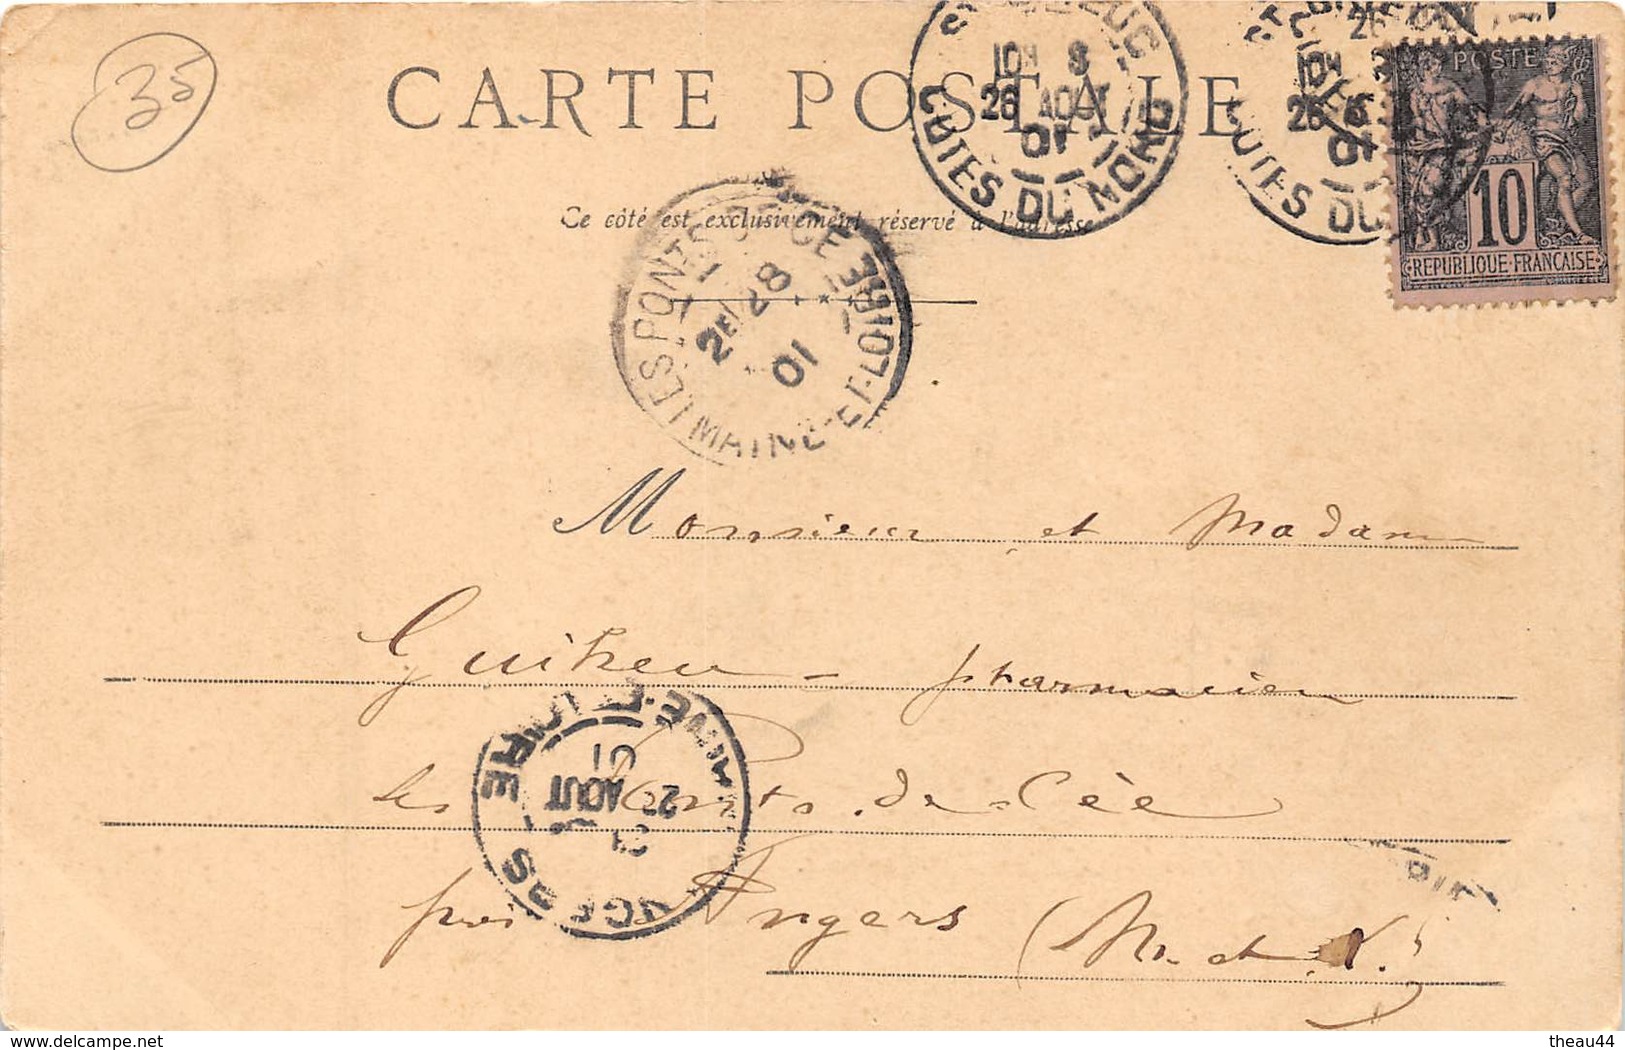 35
CARTE POSTALE
BRIEUC
10H 8
26 AOUT
01
COTES DU NORD
10H
26
01
COTES DU
POSTE
10
REPUBLIQUE FRANCAISE
Ce côté est exclusivement réservé à l'adresse
LES PONTS DE CE
2E 28
01
MAINE-ET-LOIRE
Monsieur et Madame
pharmacien
les Ponts de Cée
près Angers (M. et L.)
MAINE-ET-LOIRE
01
AOUT
ANGERS
www.delcampe.net
theau44